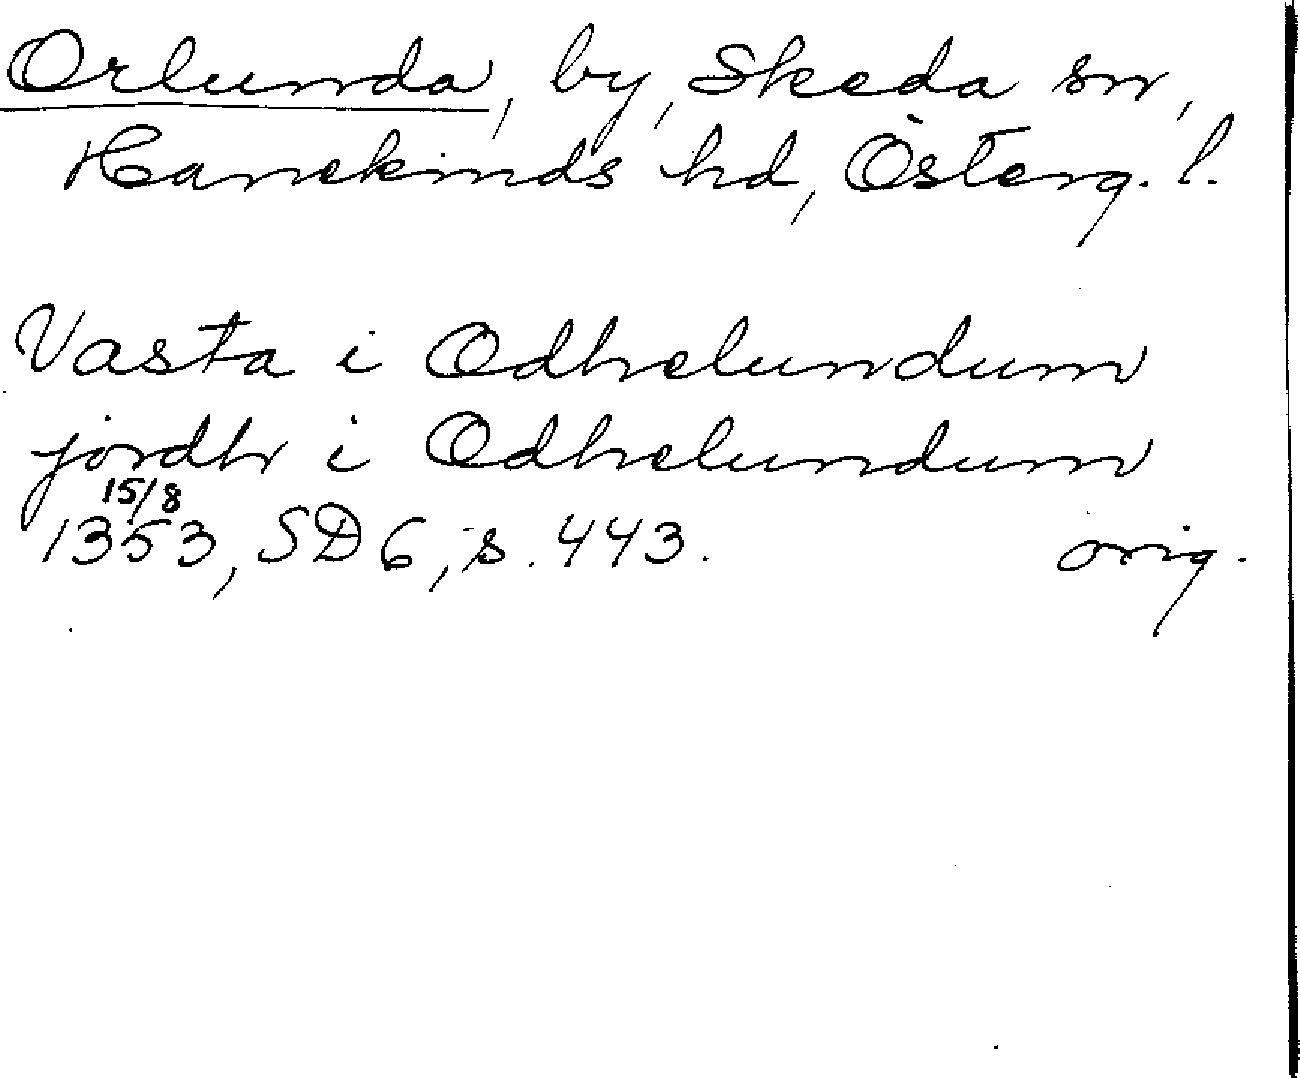 Orlunda, by, Skeda sn,
Hanekinds hd, Österg. l.
Vasta i Odhelundum
jordh i Odhelundum
15/8
1353, SD 6, s. 443. orig.